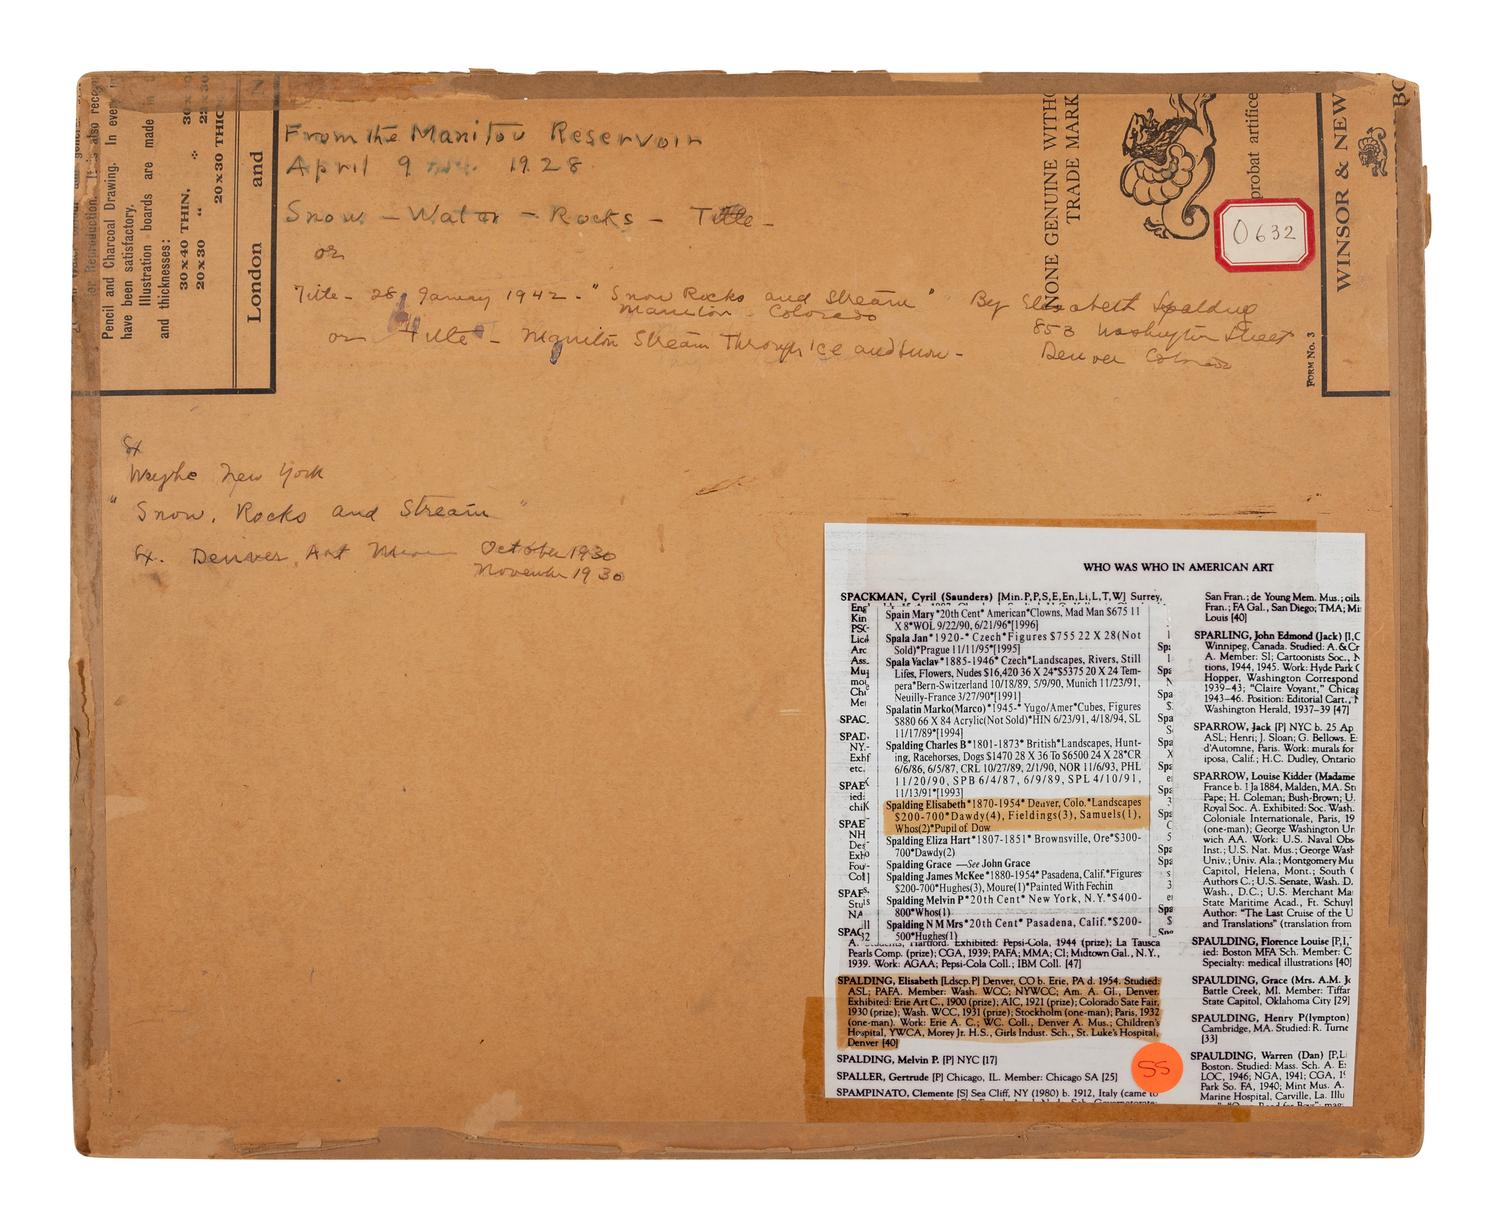 for Reproduction. It is also
Pencil and Charcoal Drawing. In every
have been satisfactory.
Illustration boards are made in
and thicknesses:
30 x 40 THIN.
20 x 30 "
20 x 30 THICK
London and
From the Manitou Reservoir
April 9 1928
Snow - Water - Rocks - Title -
or
Title - 28, January 1942 - "Snow Rocks and Stream" By Elisabeth Spalding
Manitou Colorado
853 Washington Street
or Title - Manitou Stream Through ice and snow -
Denver Colorado
NONE GENUINE WITHO
TRADE MARK
probat artifice
0632
FORM No. 3
WINSOR & NEW
Ex
Weyhe New York
"Snow, Rocks and Stream"
Ex. Denver Art Museum October 1930
November 1930
WHO WAS WHO IN AMERICAN ART
SPACKMAN, Cyril (Saunders) [Min.P,P,S,E,En,Li,L,T,W] Surrey,
Spain Mary*20th Cent* American*Clowns, Mad Man $675 11
X 8*WOL 9/22/90, 6/21/96*[1996]
Spala Jan*1920-* Czech*Figures $755 22 X 28(Not
Sold)*Prague 11/11/95*[1995]
Spala Vaclav*1885-1946* Czech*Landscapes, Rivers, Still
Lifes, Flowers, Nudes $16,420 36 X 24*$5375 20 X 24 Tem-
pera*Bern-Switzerland 10/18/89, 5/9/90, Munich 11/23/91,
Neuilly-France 3/27/90*[1991]
Spalatin Marko(Marco)*1945-* Yugo/Amer*Cubes, Figures
$880 66 X 84 Acrylic(Not Sold)*HIN 6/23/91, 4/18/94, SL
11/17/89*[1994]
Spalding Charles B*1801-1873* British*Landscapes, Hunt-
ing, Racehorses, Dogs $1470 28 X 36 To $6500 24 X 28*CR
6/6/86, 6/5/87, CRL 10/27/89, 2/1/90, NOR 11/6/93, PHL
11/20/90, SPB 6/4/87, 6/9/89, SPL 4/10/91,
11/13/91*[1993]
Spalding Elisabeth*1870-1954* Denver, Colo.*Landscapes
$200-700*Dawdy(4), Fieldings(3), Samuels(1),
Whos(2)*Pupil of Dow
Spalding Eliza Hart*1807-1851* Brownsville, Ore*$300-
700*Dawdy(2)
Spalding Grace —See John Grace
Spalding James McKee*1880-1954* Pasadena, Calif.*Figures
$200-700*Hughes(3), Moure(1)*Painted With Fechin
Spalding Melvin P*20th Cent* New York, N.Y.*$400-
800*Whos(1)
Spalding N M Mrs*20th Cent* Pasadena, Calif.*$200-
500*Hughes(1)
A. Students, Hartford. Exhibited: Pepsi-Cola, 1944 (prize); La Tausca
Pearls Comp. (prize); CGA, 1939; PAFA; MMA; CI; Midtown Gal., N.Y.,
1939. Work: AGAA; Pepsi-Cola Coll.; IBM Coll. [47]
SPALDING, Elisabeth [Ldscp.P] Denver, CO b. Erie, PA d. 1954. Studied:
ASL; PAFA. Member: Wash. WCC; NYWCC; Am. A. Gl., Denver.
Exhibited: Erie Art C., 1900 (prize); AIC, 1921 (prize); Colorado Sate Fair,
1930 (prize); Wash. WCC, 1931 (prize); Stockholm (one-man); Paris, 1932
(one-man). Work: Erie A. C.; WC. Coll., Denver A. Mus.; Children's
Hospital, YWCA, Morey Jr. H.S., Girls Indust. Sch., St. Luke's Hospital,
Denver [40]
SPALDING, Melvin P. [P] NYC [17]
SPALLER, Gertrude [P] Chicago, IL. Member: Chicago SA [25]
SPAMPINATO, Clemente [S] Sea Cliff, NY (1980) b. 1912, Italy (came to
San Fran.; de Young Mem. Mus.; oils
Fran.; FA Gal., San Diego; TMA; Mi
Louis [40]
SPARLING, John Edmond (Jack) [I,C
Winnipeg, Canada. Studied: A. & Cr
A. Member: SI; Cartoonists Soc., N
tions, 1944, 1945. Work: Hyde Park
Hopper, Washington Correspond
1939-43; "Claire Voyant," Chicag
1943-46. Position: Editorial Cart.,
Washington Herald, 1937-39 [47]
SPARROW, Jack [P] NYC b. 25 Ap
ASL; Henri; J. Sloan; G. Bellows. E
d'Automne, Paris. Work: murals for
iposa, Calif.; H.C. Dudley, Ontario
SPARROW, Louise Kidder (Madame
France b. 1 Ja 1884, Malden, MA. St
Pape; H. Coleman; Bush-Brown; U.
Royal Soc. A. Exhibited: Soc. Wash.
Coloniale Internationale, Paris, 19
(one-man); George Washington Un
wich AA. Work: U.S. Naval Obs
Inst.; U.S. Nat. Mus.; George Wash
Univ.; Univ. Ala.; Montgomery Mu
Capitol, Helena, Mont.; South
Authors C.; U.S. Senate, Wash. D.
Wash., D.C.; U.S. Merchant Ma
State Maritime Acad., Ft. Schuyl
Author: "The Last Cruise of the U
and Translations" (translation from
SPAULDING, Florence Louise [P,I,
ied: Boston MFA Sch. Member: C
Specialty: medical illustrations [40]
SPAULDING, Grace (Mrs. A.M. Jo
Battle Creek, MI. Member: Tiffar
State Capitol, Oklahoma City [29]
SPAULDING, Henry P(lympton)
Cambridge, MA. Studied: R. Turne
[33]
SPAULDING, Warren (Dan) [P,L
Boston. Studied: Mass. Sch. A. E
LOC, 1946; NGA, 1941; CGA, 1
Park So. FA, 1940; Mint Mus. A.
Marine Hospital, Carville, La. Illu
SS